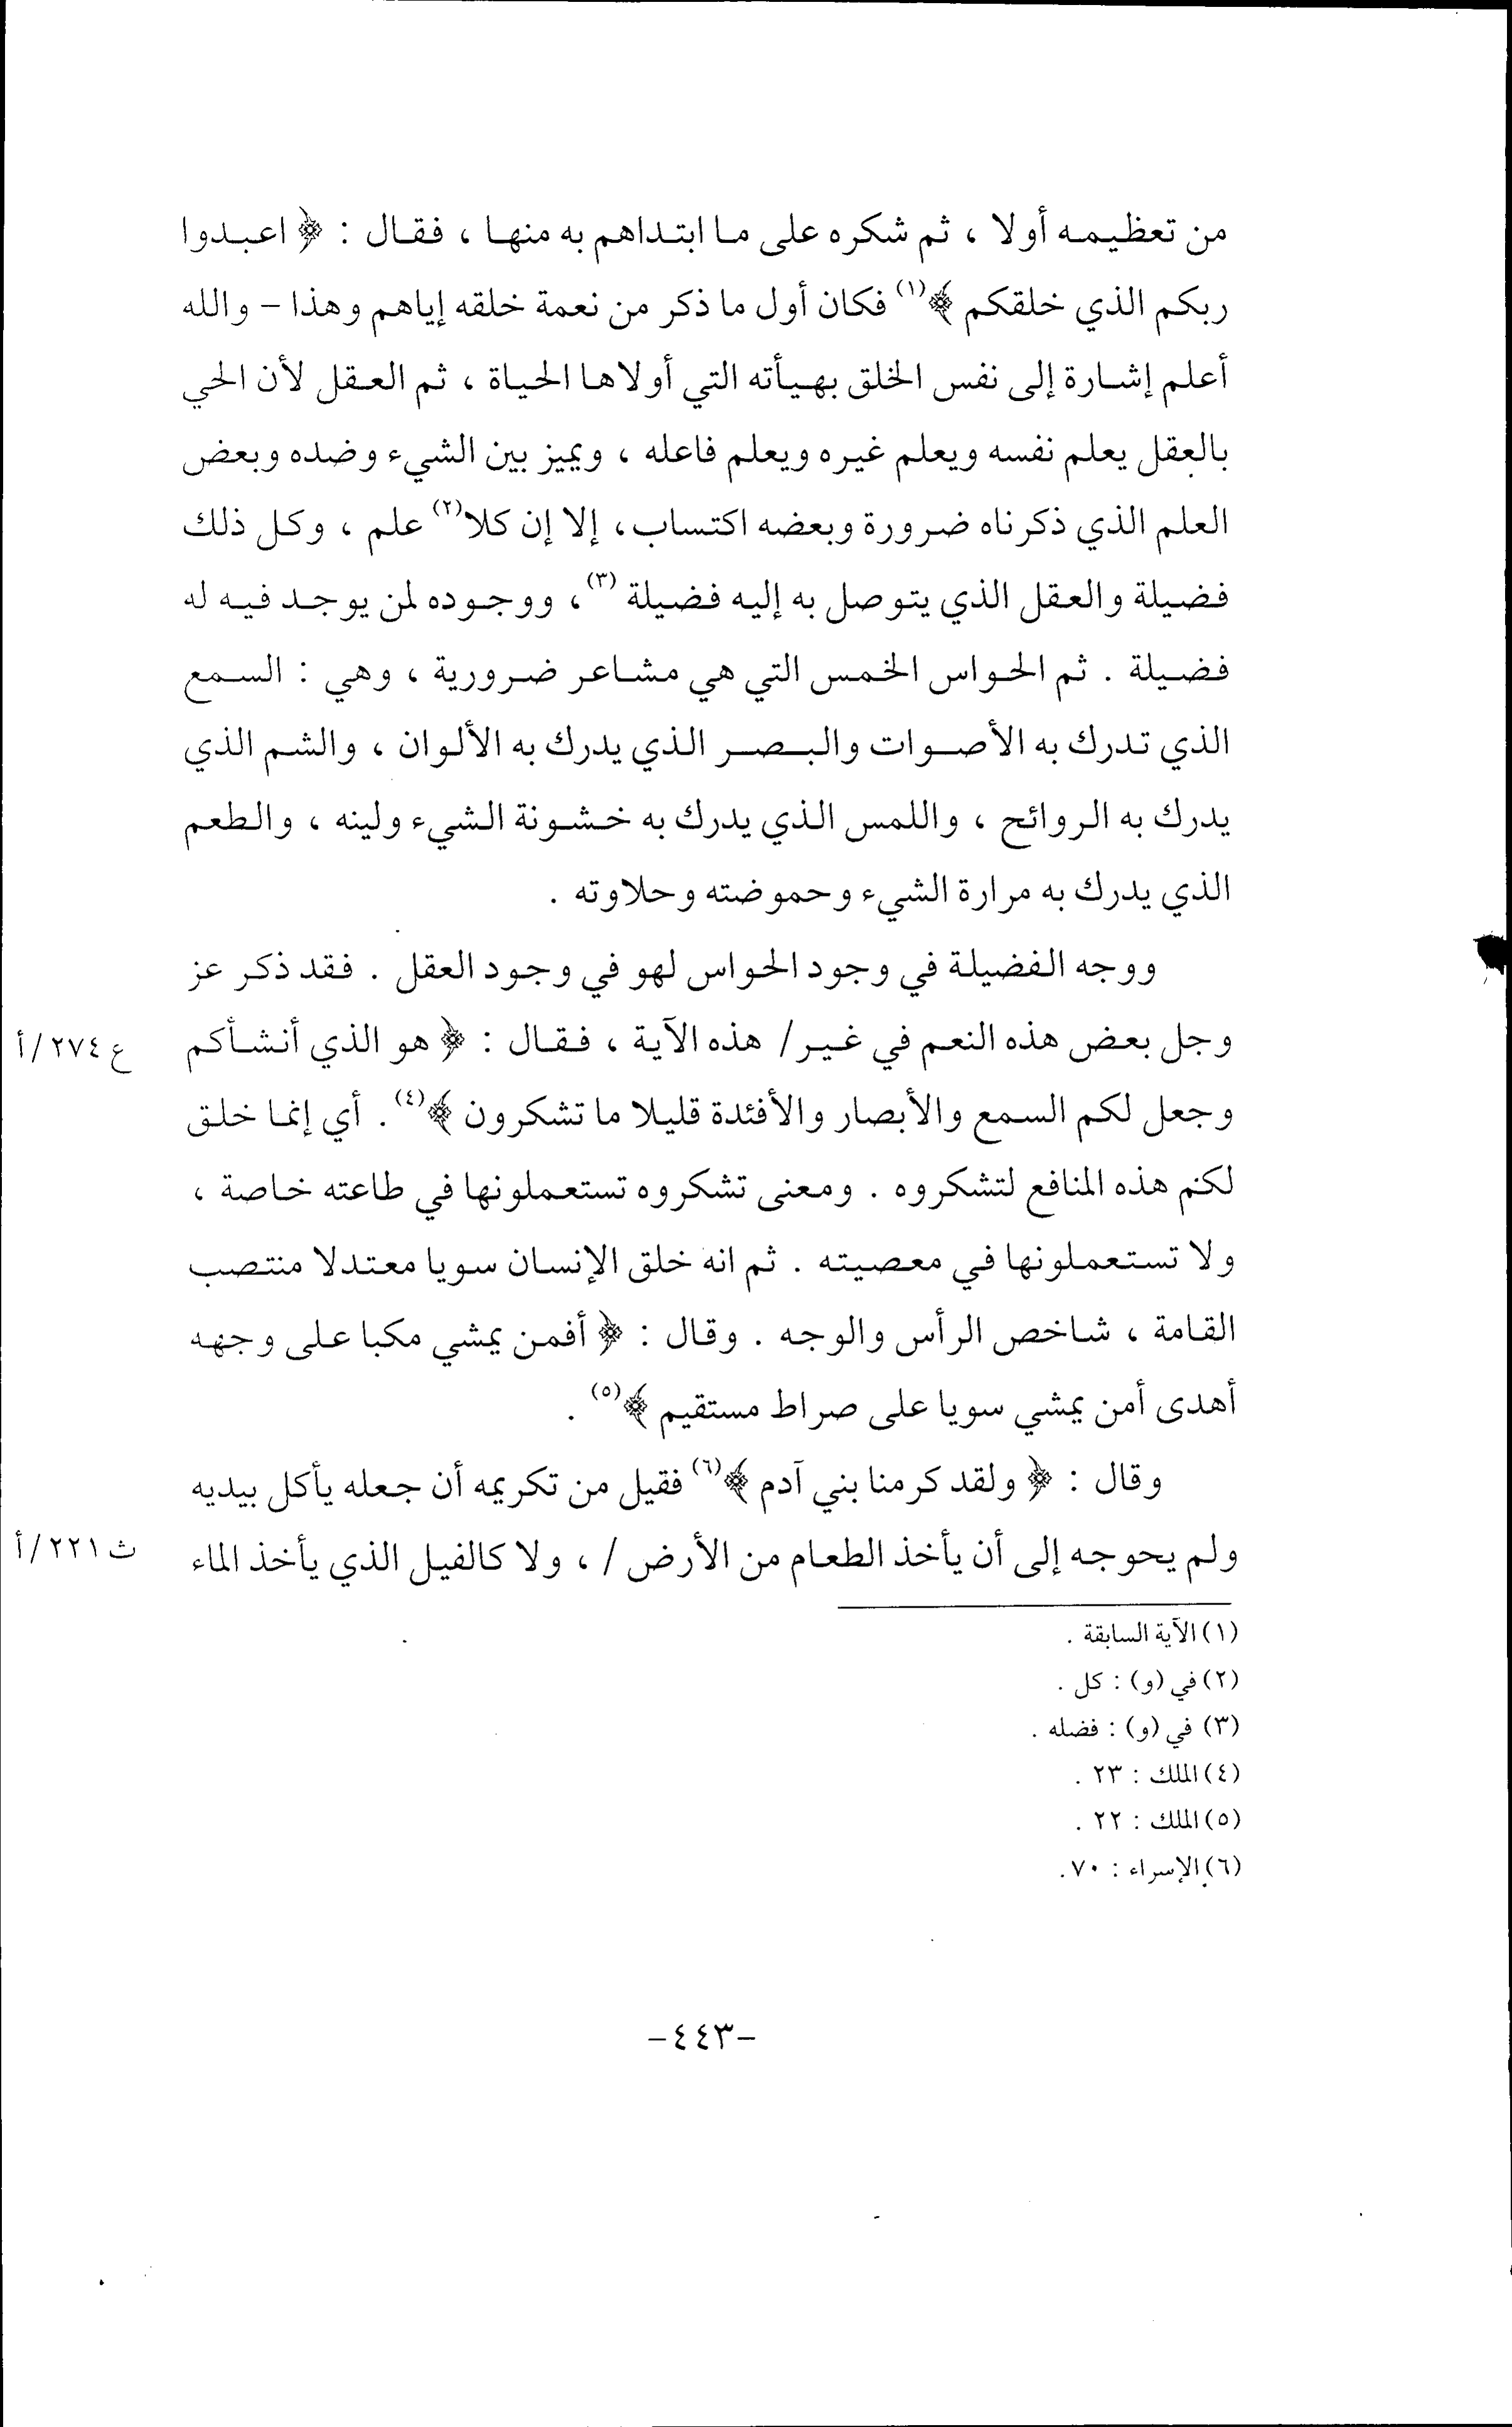 من تعظيمه أولا ، ثم شكره على ما ابتداهم به منها ، فقال : ﴿ اعبدوا
ربكم الذي خلقكم ﴾(١) فكان أول ما ذكر من نعمة خلقه إياهم وهذا - والله
أعلم إشارة إلى نفس الخلق بهيأته التي أولاها الحياة ، ثم العقل لأن الحي
بالعقل يعلم نفسه ويعلم غيره ويعلم فاعله ، ويميز بين الشيء وضده وبعض
العلم الذي ذكرناه ضرورة وبعضه اكتساب ، إلا إن كلا(٢) علم ، وكل ذلك
فضيلة والعقل الذي يتوصل به إليه فضيلة (٣) ، ووجوده لمن يوجد فيه له
فضيلة . ثم الحواس الخمس التي هي مشاعر ضرورية ، وهي : السمع
الذي تدرك به الأصوات والبصر الذي يدرك به الألوان ، والشم الذي
يدرك به الروائح ، واللمس الذي يدرك به خشونة الشيء ولينه ، والطعم
الذي يدرك به مرارة الشيء وحموضته وحلاوته .
ووجه الفضيلة في وجود الحواس لهو في وجود العقل . فقد ذكر عز
وجل بعض هذه النعم في غير / هذه الآية ، فقال : ﴿ هو الذي أنشأكم
ع ٢٧٤/أ
وجعل لكم السمع والأبصار والأفئدة قليلا ما تشكرون ﴾(٤) . أي إنما خلق
لكم هذه المنافع لتشكروه . ومعنى تشكروه تستعملونها في طاعته خاصة ،
ولا تستعملونها في معصيته . ثم انه خلق الإنسان سويا معتدلا منتصب
القامة ، شاخص الرأس والوجه . وقال : ﴿ أفمن يمشي مكبا على وجهه
أهدى أمن يمشي سويا على صراط مستقيم ﴾(٥) .
وقال : ﴿ ولقد كرمنا بني آدم ﴾(٦) فقيل من تكريمه أن جعله يأكل بيديه
ولم يحوجه إلى أن يأخذ الطعام من الأرض / ، ولا كالفيل الذي يأخذ الماء
ث ٢٢١/أ
(١) الآية السابقة .
(٢) في (و) : كل .
(٣) في (و) : فضله .
(٤) الملك : ٢٣ .
(٥) الملك : ٢٢ .
(٦) الإسراء : ٧٠.
-٤٤٣-